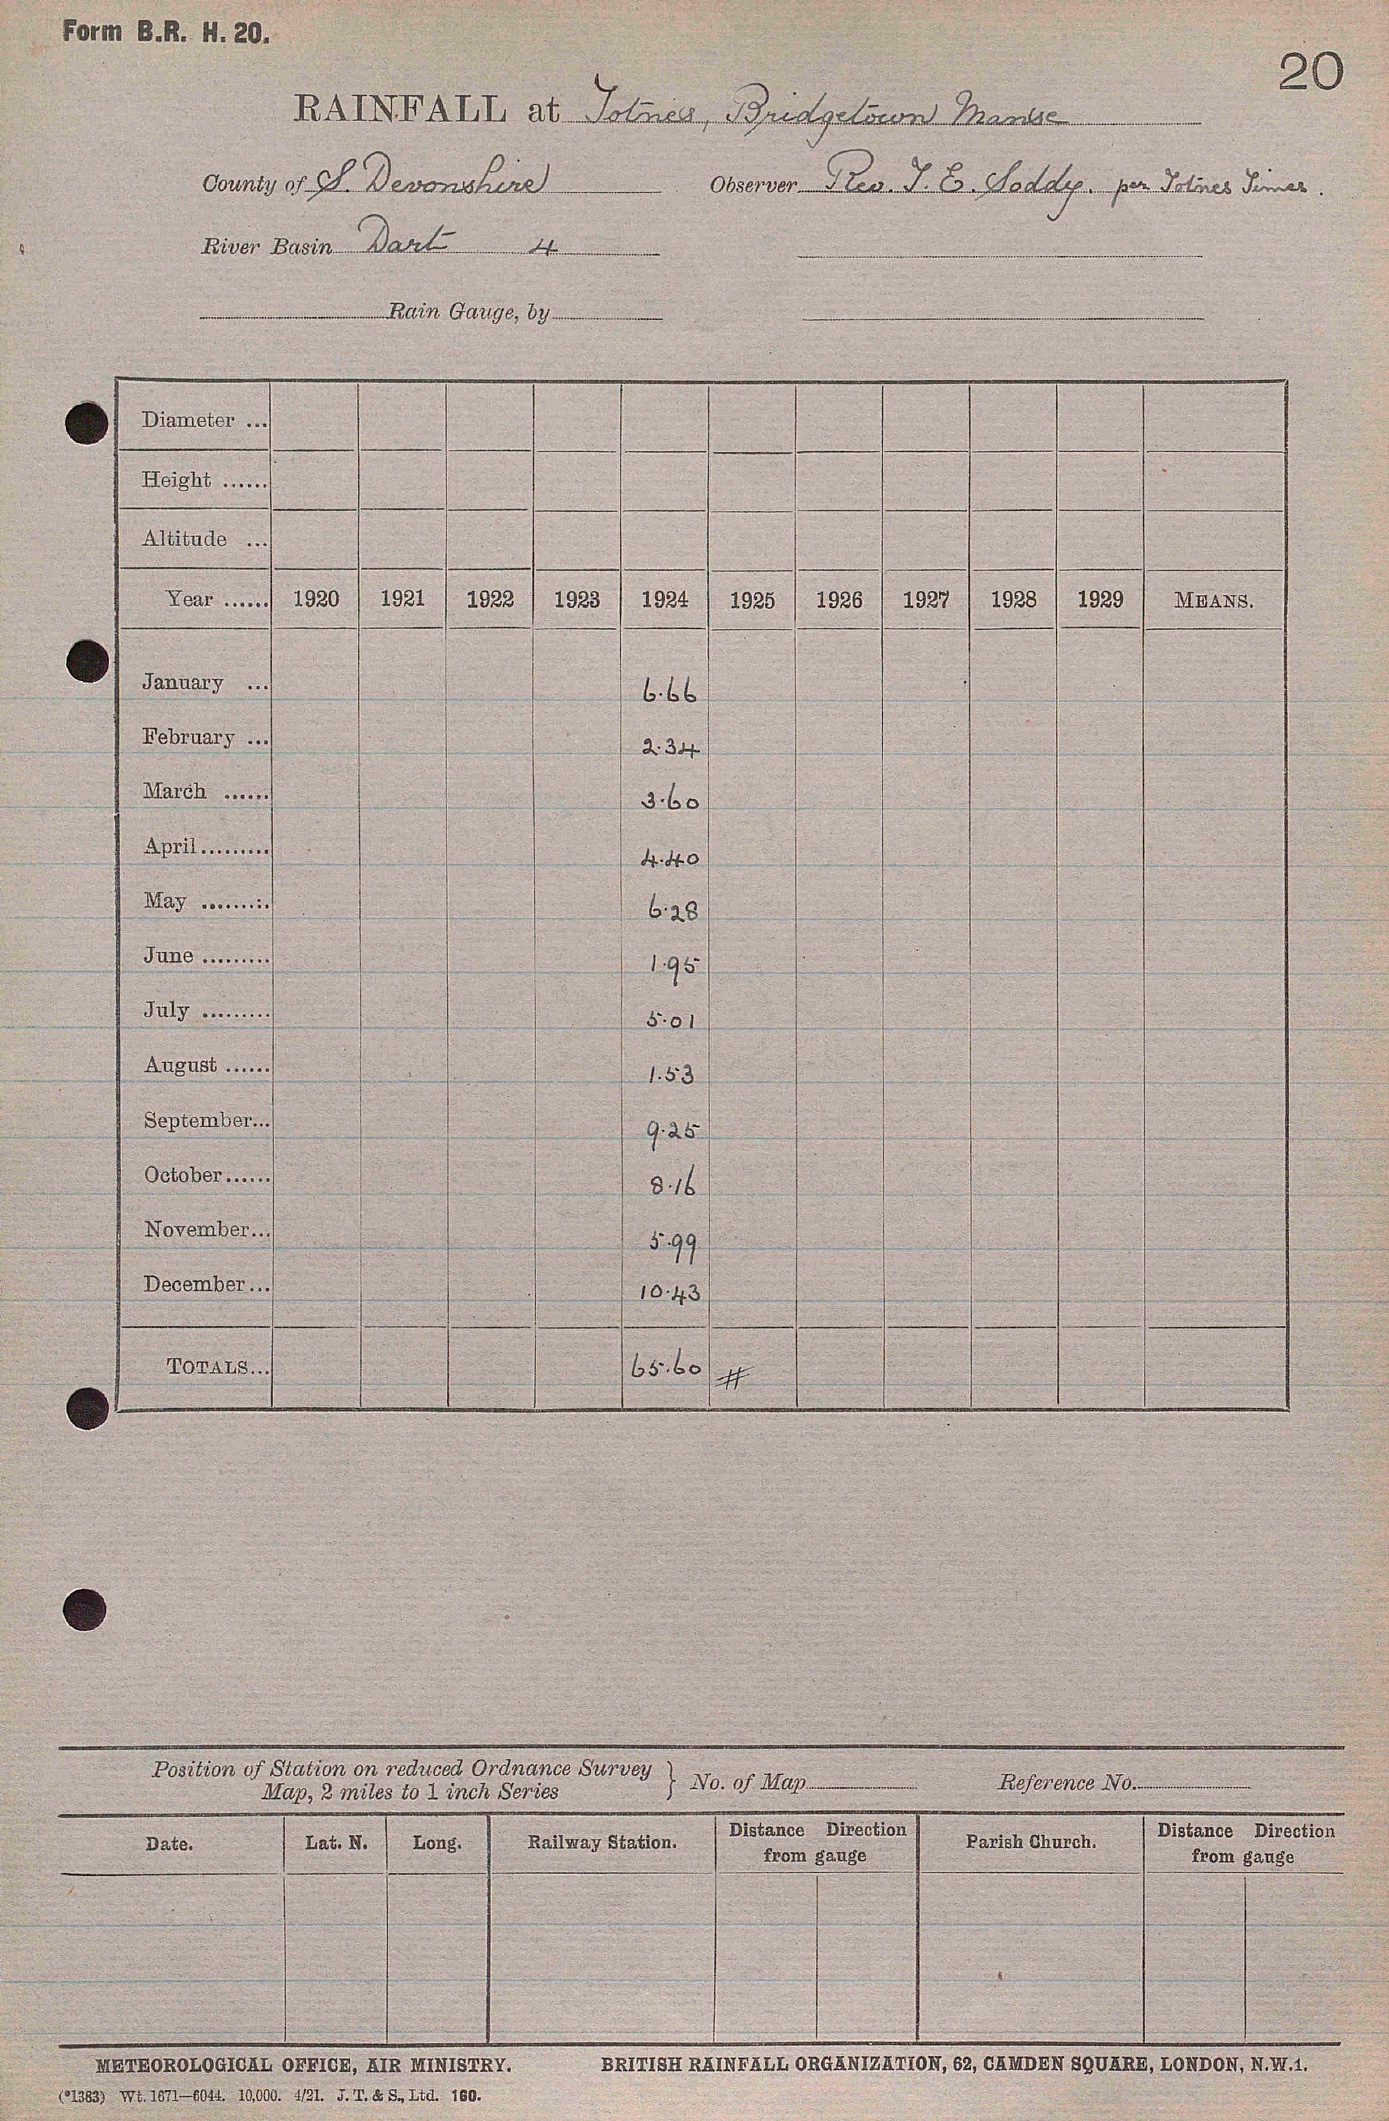 Form B.R. H. 20.
20
RAINFALL at Totnes, Bridgetown Manse
County of S. Devonshire Observer Rev. T. E. Soddy. per Totnes Times.
River Basin Dart 4
Rain Gauge, by
Diameter ...
Height ......
Altitude ...
Year ...... 1920 1921 1922 1923 1924 1925 1926 1927 1928 1929 MEANS.
January ... 6.66
February ... 2.34
March ...... 3.60
April ......... 4.40
May ......... 6.28
June ......... 1.95
July ......... 5.01
August ...... 1.53
September... 9.25
October ...... 8.16
November... 5.99
December... 10.43
TOTALS... 65.60 #
Position of Station on reduced Ordnance Survey
Map, 2 miles to 1 inch Series } No. of Map Reference No.
Date. Lat. N. Long. Railway Station. Distance Direction from gauge Parish Church. Distance Direction from gauge
METEOROLOGICAL OFFICE, AIR MINISTRY. BRITISH RAINFALL ORGANIZATION, 62, CAMDEN SQUARE, LONDON, N.W.1.
(*1383) Wt. 1671—6044. 10,000. 4/21. J. T. & S., Ltd. 160.